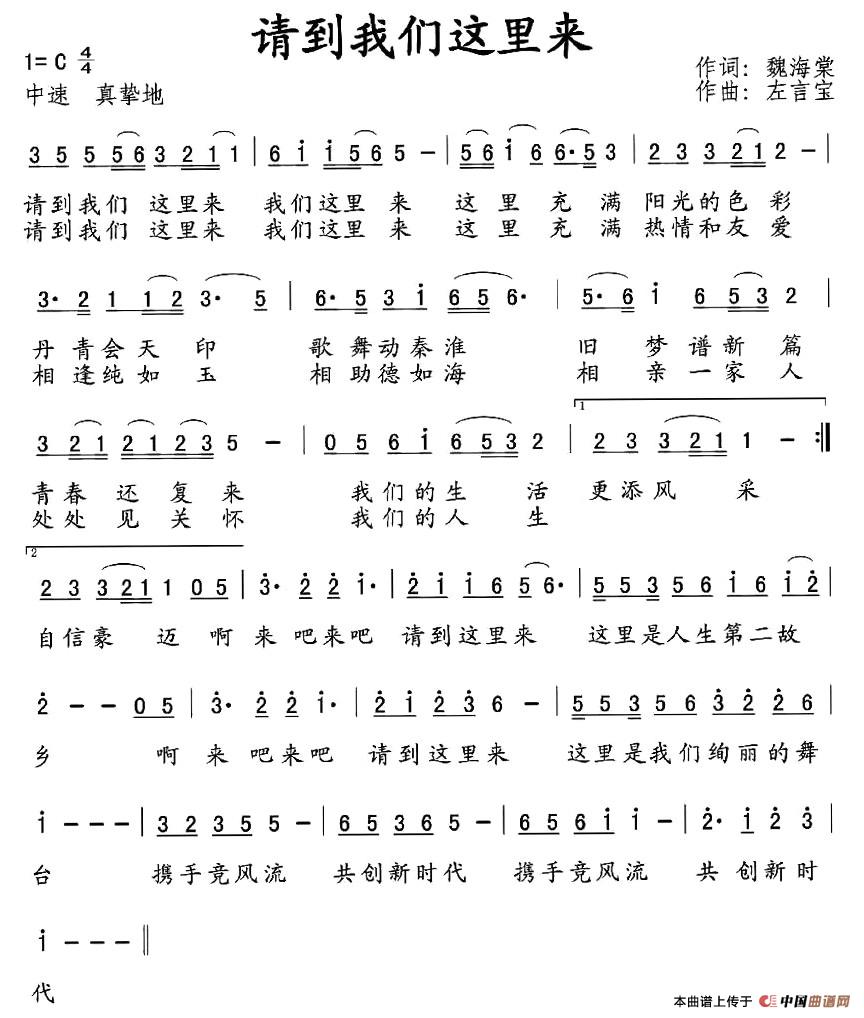 请到我们这里来
1=C 4/4
作词：魏海棠
中速 真挚地
作曲：左言宝
3 5 5 56 3 21 1 | 6 i i56 5 - | 56 i6 6·5 3 | 2 3 3 21 2 - |
请到我们 这里来 我们这里 来 这 里 充 满 阳光的色 彩
请到我们 这里来 我们这里 来 这 里 充 满 热情和友 爱
3· 2 1 12 3· 5 | 6· 5 3 i 65 6· | 5· 6 i 6 53 2 |
丹 青会天 印 歌 舞动秦淮 旧 梦谱新 篇
相 逢纯如 玉 相 助德如海 相 亲一家 人
1
3 21 21 23 5 - | 0 5 6 i 6 53 2 | 2 3 3 21 1 - :‖
青春 还 复 来 我们的生 活 更添风 采
处处 见 关 怀 我们的人 生
2
2 3 3 21 1 0 5 | 3· 2 2 i· | 2 i i 6 5 6· | 5 5 3 5 6 i 6 i 2 |
自信豪 迈 啊 来 吧来吧 请到这里来 这里是人生第二故
2 - - 0 5 | 3· 2 2 i· | 2 i 2 3 6 - | 5 5 3 5 6 3 2 2 6 |
乡 啊 来 吧来吧 请到这里来 这里是我们绚丽的舞
i - - - | 3 2 3 5 5 - | 6 5 3 6 5 - | 6 5 6 i i - | 2· i 2 3 |
台 携手竞风流 共创新时代 携手竞风流 共 创新时
i - - - ‖
代
本曲谱上传于 中国曲谱网